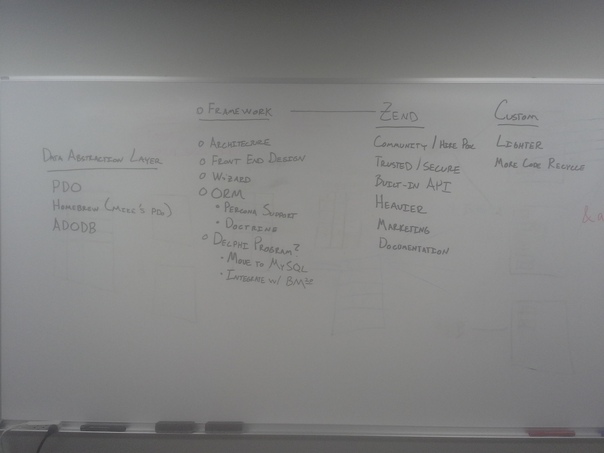 Data Abstraction Layer
PDO
Homebrew (Mike's PDO)
ADODB
Framework
Architecture
Front End Design
Wizard
ORM
Percona Support
Doctrine
Delphi Program?
Move to MySQL
Integrate w/
Zend
Community / Here
Trusted / Secure
Built-in API
Heavier
Marketing
Documentation
Custom
Lighter
More Code Recycle